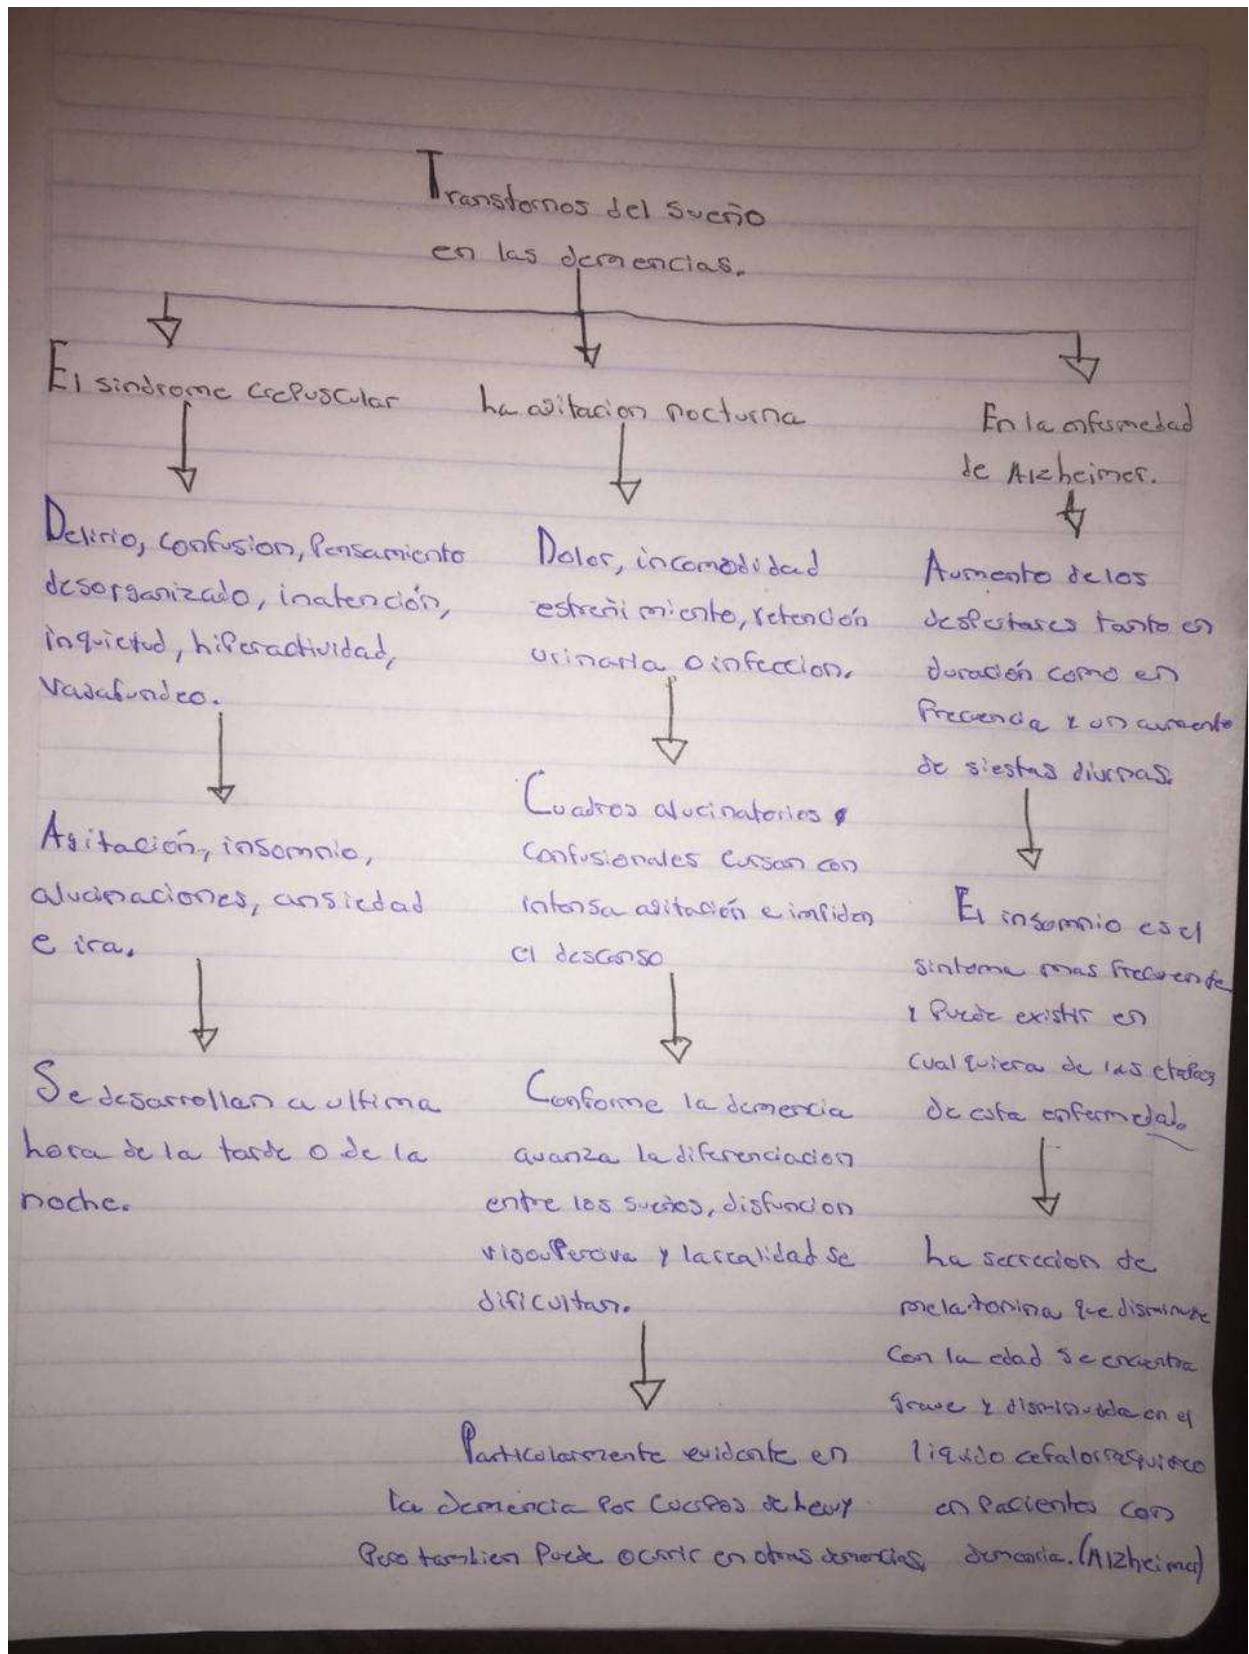 Transtornos del sueño
en las demencias.
El sindrome crepuscular
Delirio, confusion, Pensamiento
desorganizado, inatención,
inquietud, hiperactividad,
Vagabundeo.
Agitación, insomnio,
alucinaciones, ansiedad
e ira.
Se desarrollan a ultima
hora de la tarde o de la
noche.
La agitacion nocturna
Dolor, incomodidad
estreñimiento, retención
urinaria o infeccion.
Cuadros alucinatorios
Confusionales cursan con
intensa agitación e impiden
el descanso
Conforme la demencia
avanza la diferenciacion
entre los sueños, disfuncion
y la realidad se
dificultan.
Particularmente evidente en
la demencia por Cuerpos de Lewy
Pero tambien Puede ocurrir en otras demencias.
En la enfermedad
de Alzheimer.
Aumento de los
despertares tanto en
duración como en
frecuencia y un aumento
de siestas diurnas.
El insomnio es el
sintoma mas frecuente
y Puede existir en
cualquiera de las etapas
de esta enfermedad.
La secrecion de
melatonina que disminuye
con la edad se encuentra
grave y disminuida en el
liquido cefalorraquideo
en Pacientes con
demencia. (Alzheimer)